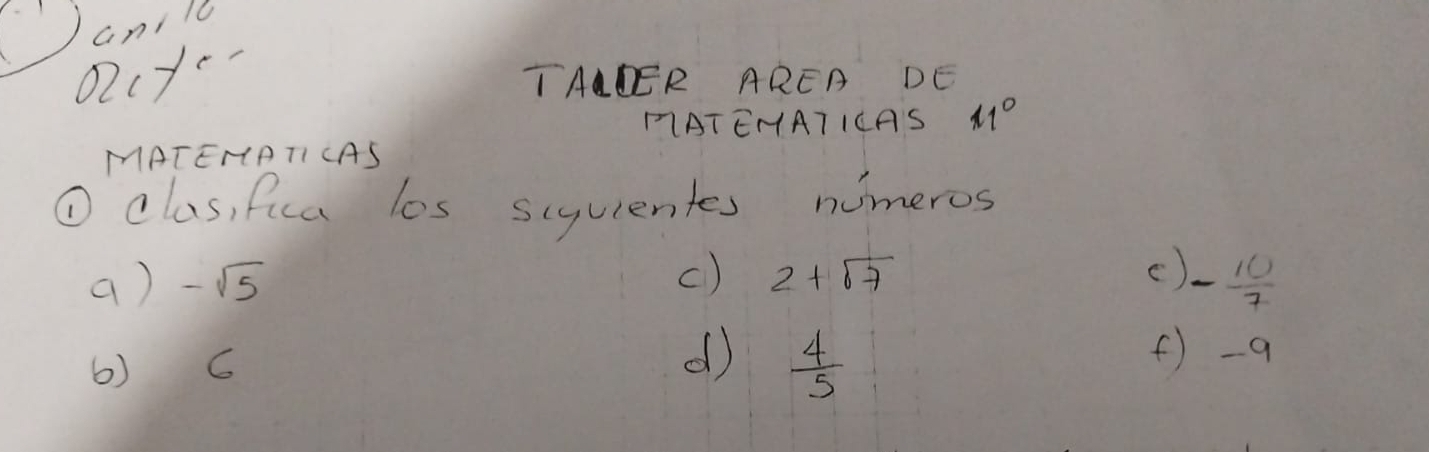 TALLER AREA DE
MATEMATICAS 11°
MATEMATICAS
① Clasifica los siguientes números
a) -√5 c) 2+√7 e) - 10/7
b) 6 d) 4/5 f) -9